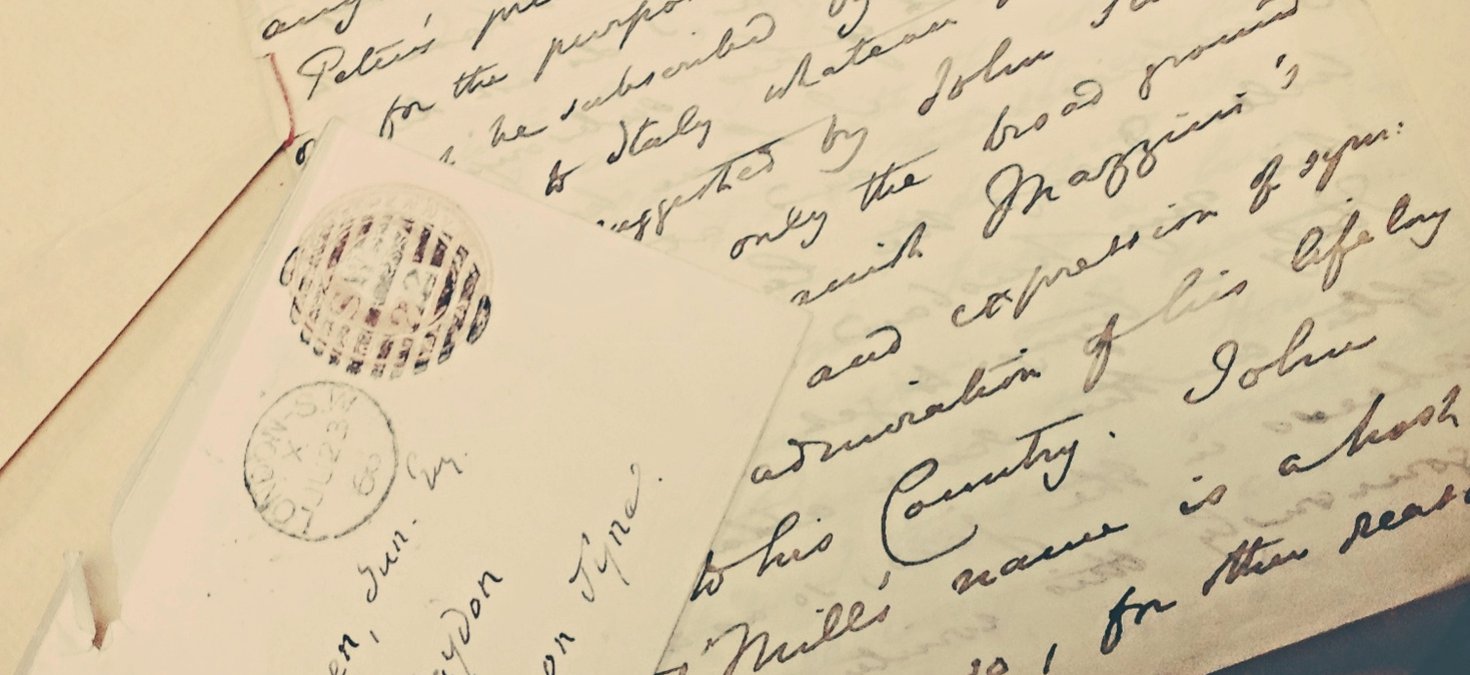 Peter's
for the
be subscribed by
to Italy whatever
suggested by John
only the broad ground
with Mazzini's
and expression of sym:
admiration of his lifelong
to his Country. John
Mill's name is a host
for
S.W
22
LONDON-S.W
X
23
66
en, Jun. Esq.
aydon
on Tyne.